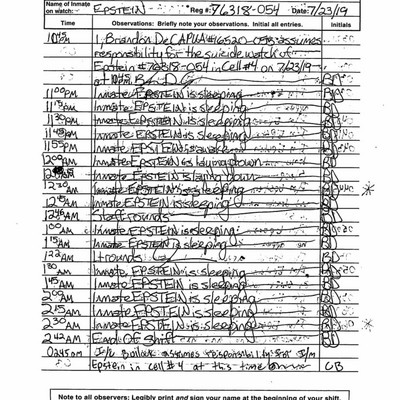 Name of Inmate on Watch: EPSTEIN Reg #: 76318-054 Date: 7/23/19
Time Observations: Briefly note your observations. Initial all entries. Initials
1045 PM I, Brandon DeCAPUA #16520- assumes
responsibility for the suicide watch of
Epstein #76318-054 in Cell #4 on 7/23/19
at 1045 BD
11:00PM Inmate EPSTEIN is sleeping BD
11:15AM Inmate EPSTEIN is sleeping BD
11:30AM Inmate EPSTEIN is sleeping BD
11:45AM Inmate EPSTEIN is sleeping BD
11:55PM Inmate EPSTEIN is awake BD
12:00AM Inmate EPSTEIN is laying down BD
Inmate EPSTEIN is laying down BD
12:30AM Inmate EPSTEIN is sleeping BD *
12:45AM Inmate EPSTEIN is sleeping BD
12:46AM Staff rounds BD
1:00AM Inmate EPSTEIN is sleeping BD
1:15AM Inmate EPSTEIN is sleeping BD
1:22AM Lt rounds BD
1:30AM Inmate EPSTEIN is sleeping BD
1:45AM Inmate EPSTEIN is sleeping BD
2:00AM Inmate EPSTEIN is sleeping BD
2:15AM Inmate EPSTEIN is sleeping BD
2:30AM Inmate EPSTEIN is sleeping BD *
2:42AM End Of Shift BD
0245am assumes responsibility for I/M
Epstein in cell #4 at this time CB
Note to all observers: Legibly print and sign your name at the beginning of your shift.